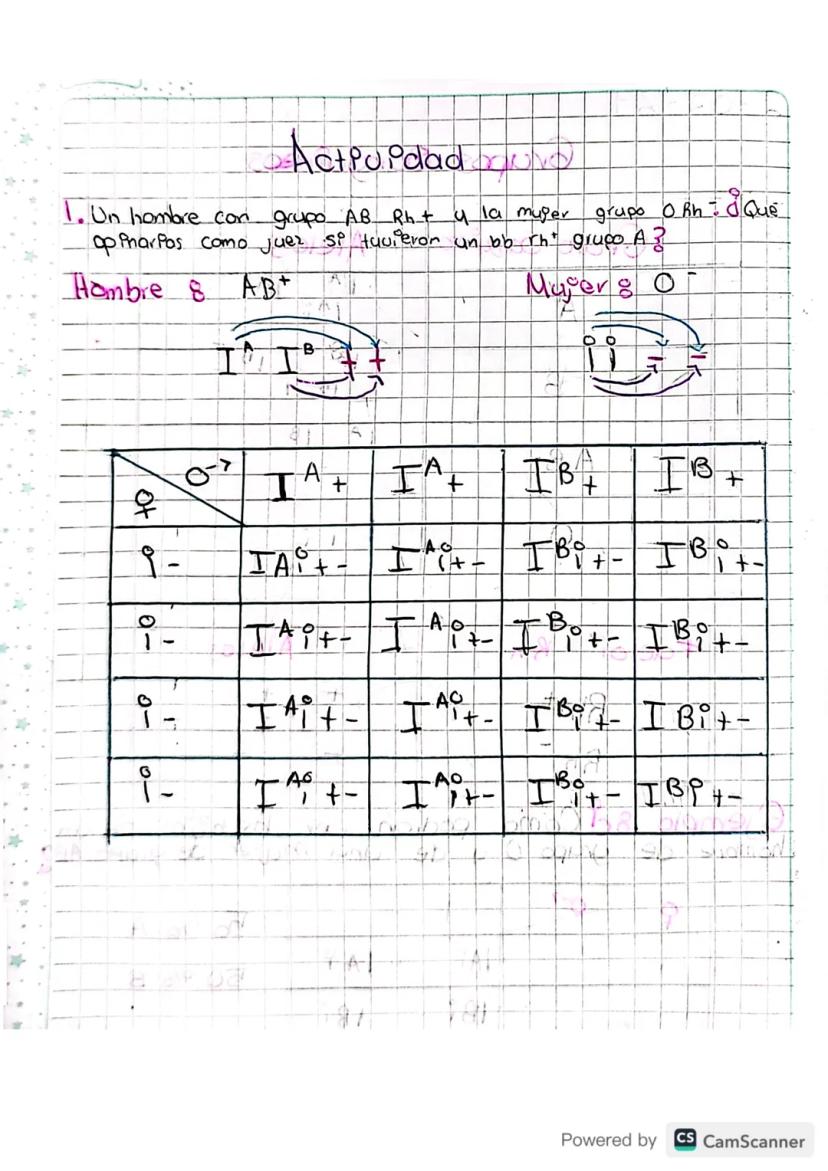 Actividad
1. Un hombre con grupo AB Rh+ y la mujer grupo O Rh-. ¿Qué
opinarías como juez si tuvieron un bb rh+ grupo A?
Hombre: AB+ Mujer: O-
I^A I^B + + ii - -
♀ ♂ I^A + I^A + I^B + I^B +
i - I^A i + - I^A i + - I^B i + - I^B i + -
i - I^A i + - I^A i + - I^B i + - I^B i + -
i - I^A i + - I^A i + - I^B i + - I B i + -
i - I^A i + - I^A i + - I^B i + - I B i + -
Powered by CS CamScanner